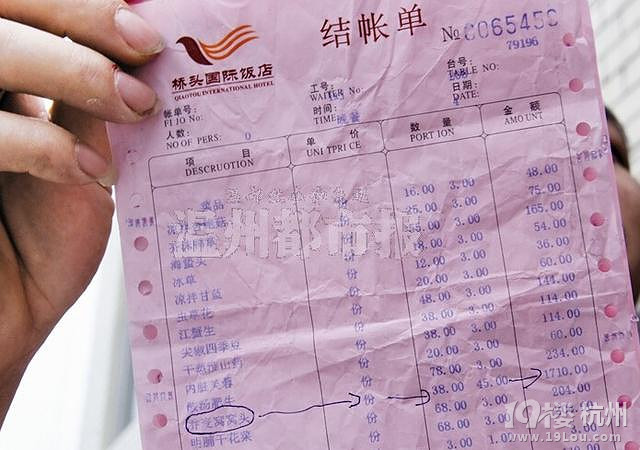 结帐单
№ C065450
79196
桥头国际饭店
QIAOTOU INTERNATIONAL HOTEL
帐单号:
FIJO No:
工号:
WAITER No:
台号:
TABLE NO:
人数:
NO OF PERS: 0
时间:
TIME: 晚餐
日期:
DATE:
项 目
DESCRUOTION
单 价
UNITPRICE
数 量
PORTION
金 额
AMOUNT
份 16.00 3.00 48.00
份 25.00 3.00 75.00
份 55.00 3.00 165.00
海蜇头 份 18.00 3.00 54.00
冰草 份 12.00 3.00 36.00
凉拌甘蓝 份 20.00 3.00 60.00
虫草花 份 48.00 3.00 144.00
江蟹生 份 38.00 3.00 114.00
尖椒四季豆 份 38.00 3.00 114.00
干煎淮山药 份 20.00 3.00 60.00
内脏芙蓉 份 78.00 3.00 234.00
份 38.00 45.00 1710.00
窝窝头 份 68.00 3.00 204.00
明脯干花菜 份 68.00 3.00
温州都市报
19楼 杭州
www.19lou.com